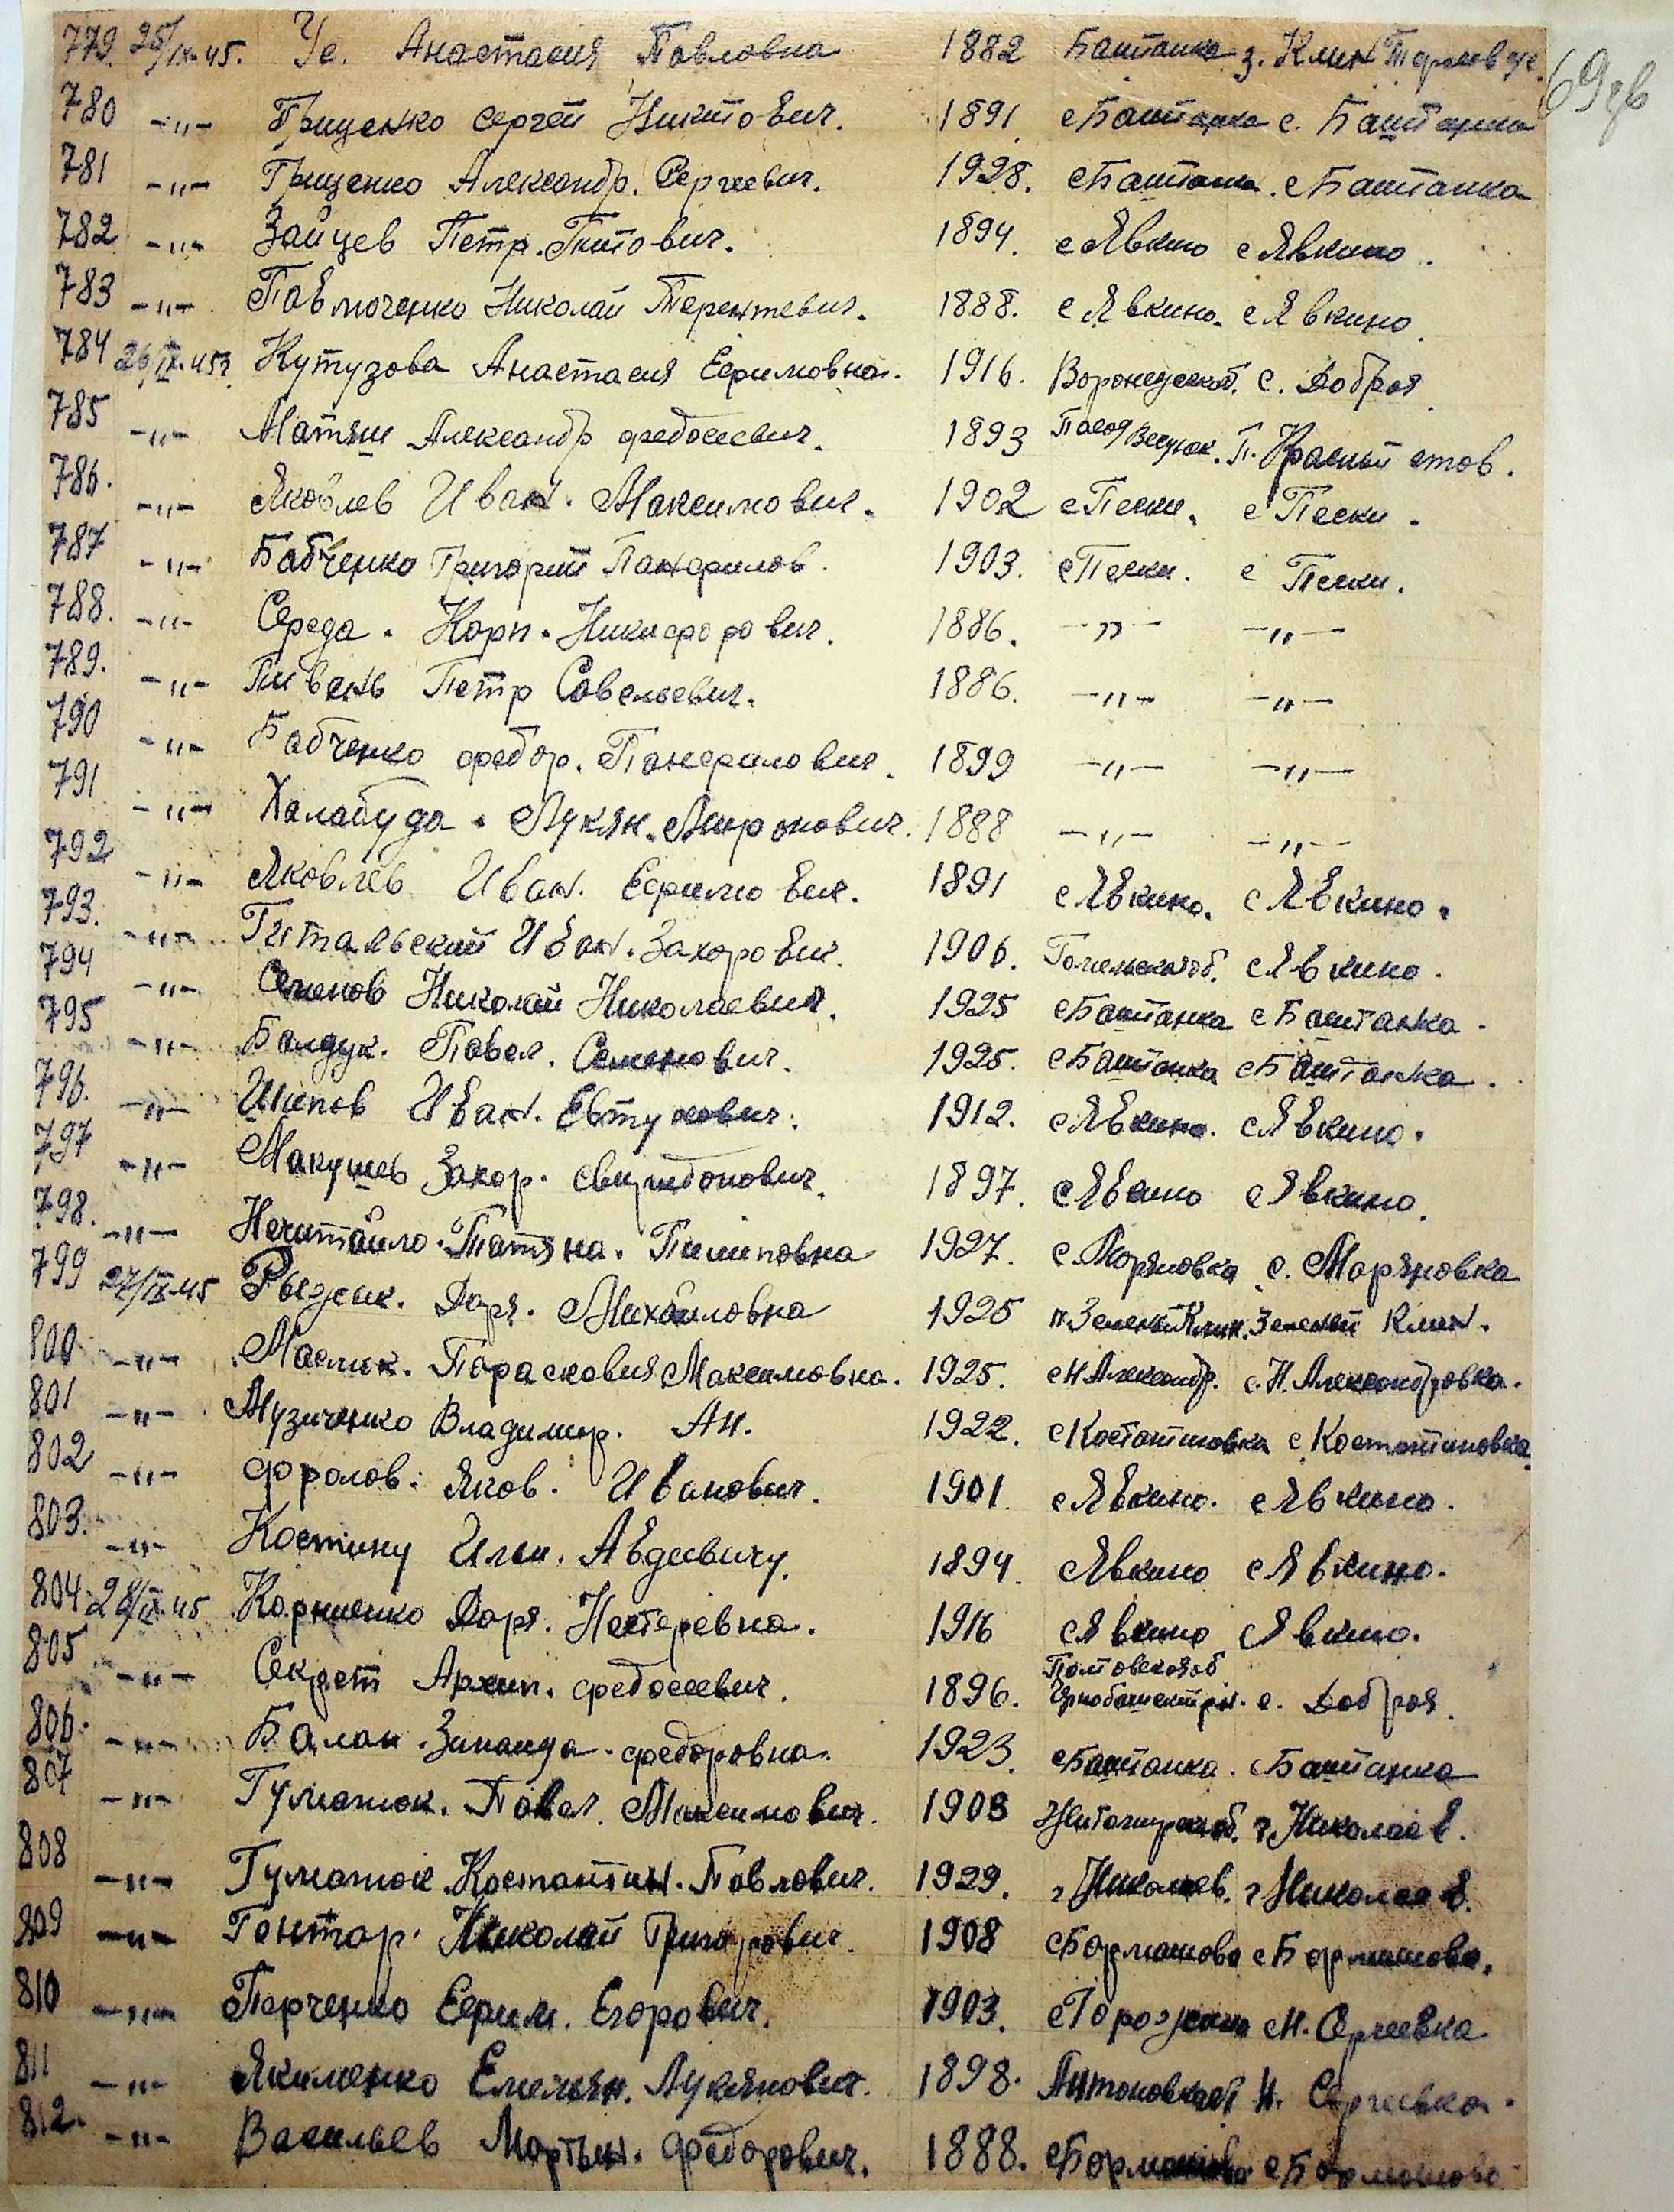 779. 25/IX-45. Ус. Анастасия Павловна 1882 Баштанка з. Клин
69
780 -"- Гриценко Сергей Никитович. 1891 с Баштанка с. Баштанка
781 -"- Гриценко Александр. Сергеевич. 1928. с Баштанка. с Баштанка
782 -"- Зайцев Петр. Титович. 1894. с Явкино с Явкино.
783 -"- Павлюченко Николай Терентевич. 1888. с Явкино. с Явкино.
784 26/IX-45г. Кутузова Анастасия Ефимовна. 1916. с. Добрая
785 -"- Матяш Александр Федосеевич. 1893 П. Красный
786. -"- Яковлев Иван. Максимович. 1902 с Пески. с Пески.
787 -"- Бабченко Григорий Панфилов. 1903. с Пески. с Пески.
788. -"- Середа. Карп. Никифорович. 1886. -"- -"-
789. -"- Пивень Петр Савельевич. 1886. -"- -"-
790 -"- Бабченко Федор. Панфилович. 1899 -"- -"-
791 -"- Халабуда. Лукян. Миронович. 1888 -"- -"-
792 -"- Яковлев Иван. Ефимович. 1891 с Явкино. с Явкино.
793. -"- Гитальский Иван. Захорович. 1906. Гомельская об. с Явкино.
794 -"- Семенов Николай Николаевич. 1925 с Баштанка с Баштанка.
795 -"- Балдук. Павел. Семенович. 1925. с Баштанка с Баштанка.
796. -"- Шипов Иван. Евтухович. 1912. с Явкино. с Явкино.
797 -"- Макушев Захор. 1897. с Явкино с Явкино.
798. -"- Нечитайло. Татяна. Пилиповна 1927. с. Маряновка с. Маряновка
799 27/IX-45 Рыжик. Даря. Михайловна 1925 п. Зелены Клин. Зеленый Клин.
800 -"- Маслюк. Парасковия Максимовна. 1925. с Н Александр. с. Н. Александровка.
801 -"- Музиченко Владимир. Ан. 1922. с Костантиновка с Костантиновка
802 -"- Фролов. Яков. Иванович. 1901. с Явкино. с Явкино.
803. -"- Костину Илии. Авдеевичу. 1894. с Явкино с Явкино.
804. 28/IX-45 Корниенко Даря. Нестеревна. 1916 с Явкино с Явкино.
805 -"- Секрет Архип. Федосеевич. 1896. с. Добрая.
806. -"- Балан. Зинаида. Федоровна. 1923. с Баштанка. с Баштанка
807 -"- Гуманюк. Павел. Максимович. 1903 Житомирская об. г. Николаев.
808 -"- Гуманюк. Костантин. Павлович. 1929. г Николаев. г Николаев.
809 -"- Гонтар. Николай Григорович. 1908 с Бармашово с Бармашово.
810 -"- Перченко Ефим. Егорович. 1903. с Горожино с Н. Сергеевка.
811 -"- Якименко Емельян. Лукянович. 1898. Н. Сергеевка.
812. -"- Васильев Мартын. Федорович. 1888. с Бармашово с Бармашово